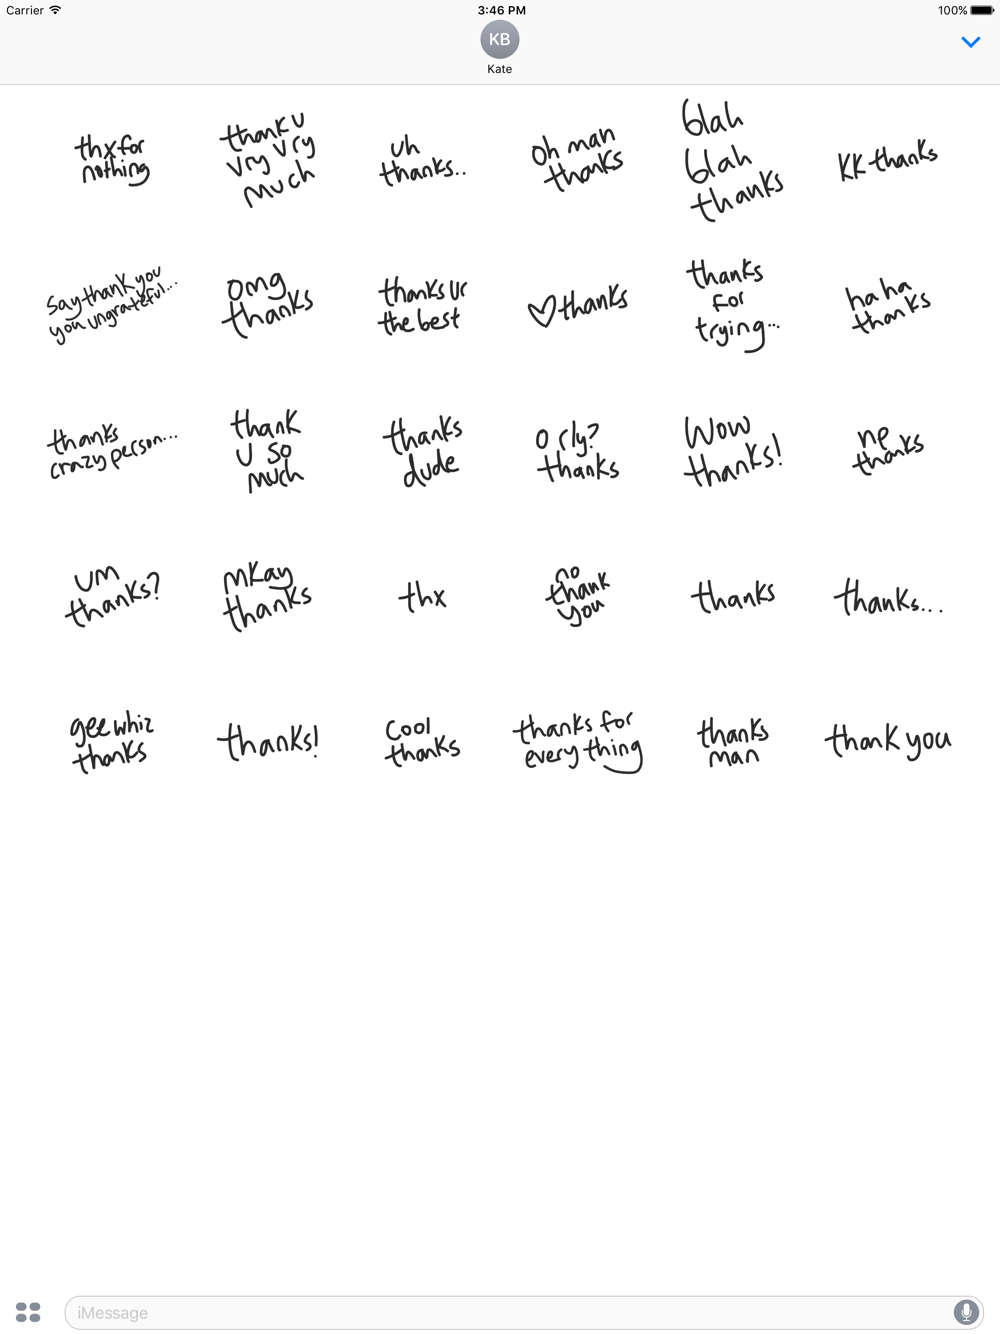 Carrier 3:46 PM 100%
KB
Kate
thx for
nothing
thank u
vry vry
much
uh
thanks..
oh man
thanks
blah
blah
thanks
KK thanks
say thank you
you ungrateful...
omg
thanks
thanks ur
the best
♡thanks
thanks
for
trying...
ha ha
thanks
thanks
crazy person...
thank
u so
much
thanks
dude
o rly?
thanks
Wow
thanks!
ne
thanks
um
thanks?
mkay
thanks
thx
no
thank
you
thanks
thanks...
gee whiz
thanks
thanks!
cool
thanks
thanks for
every thing
thanks
man
thank you
iMessage